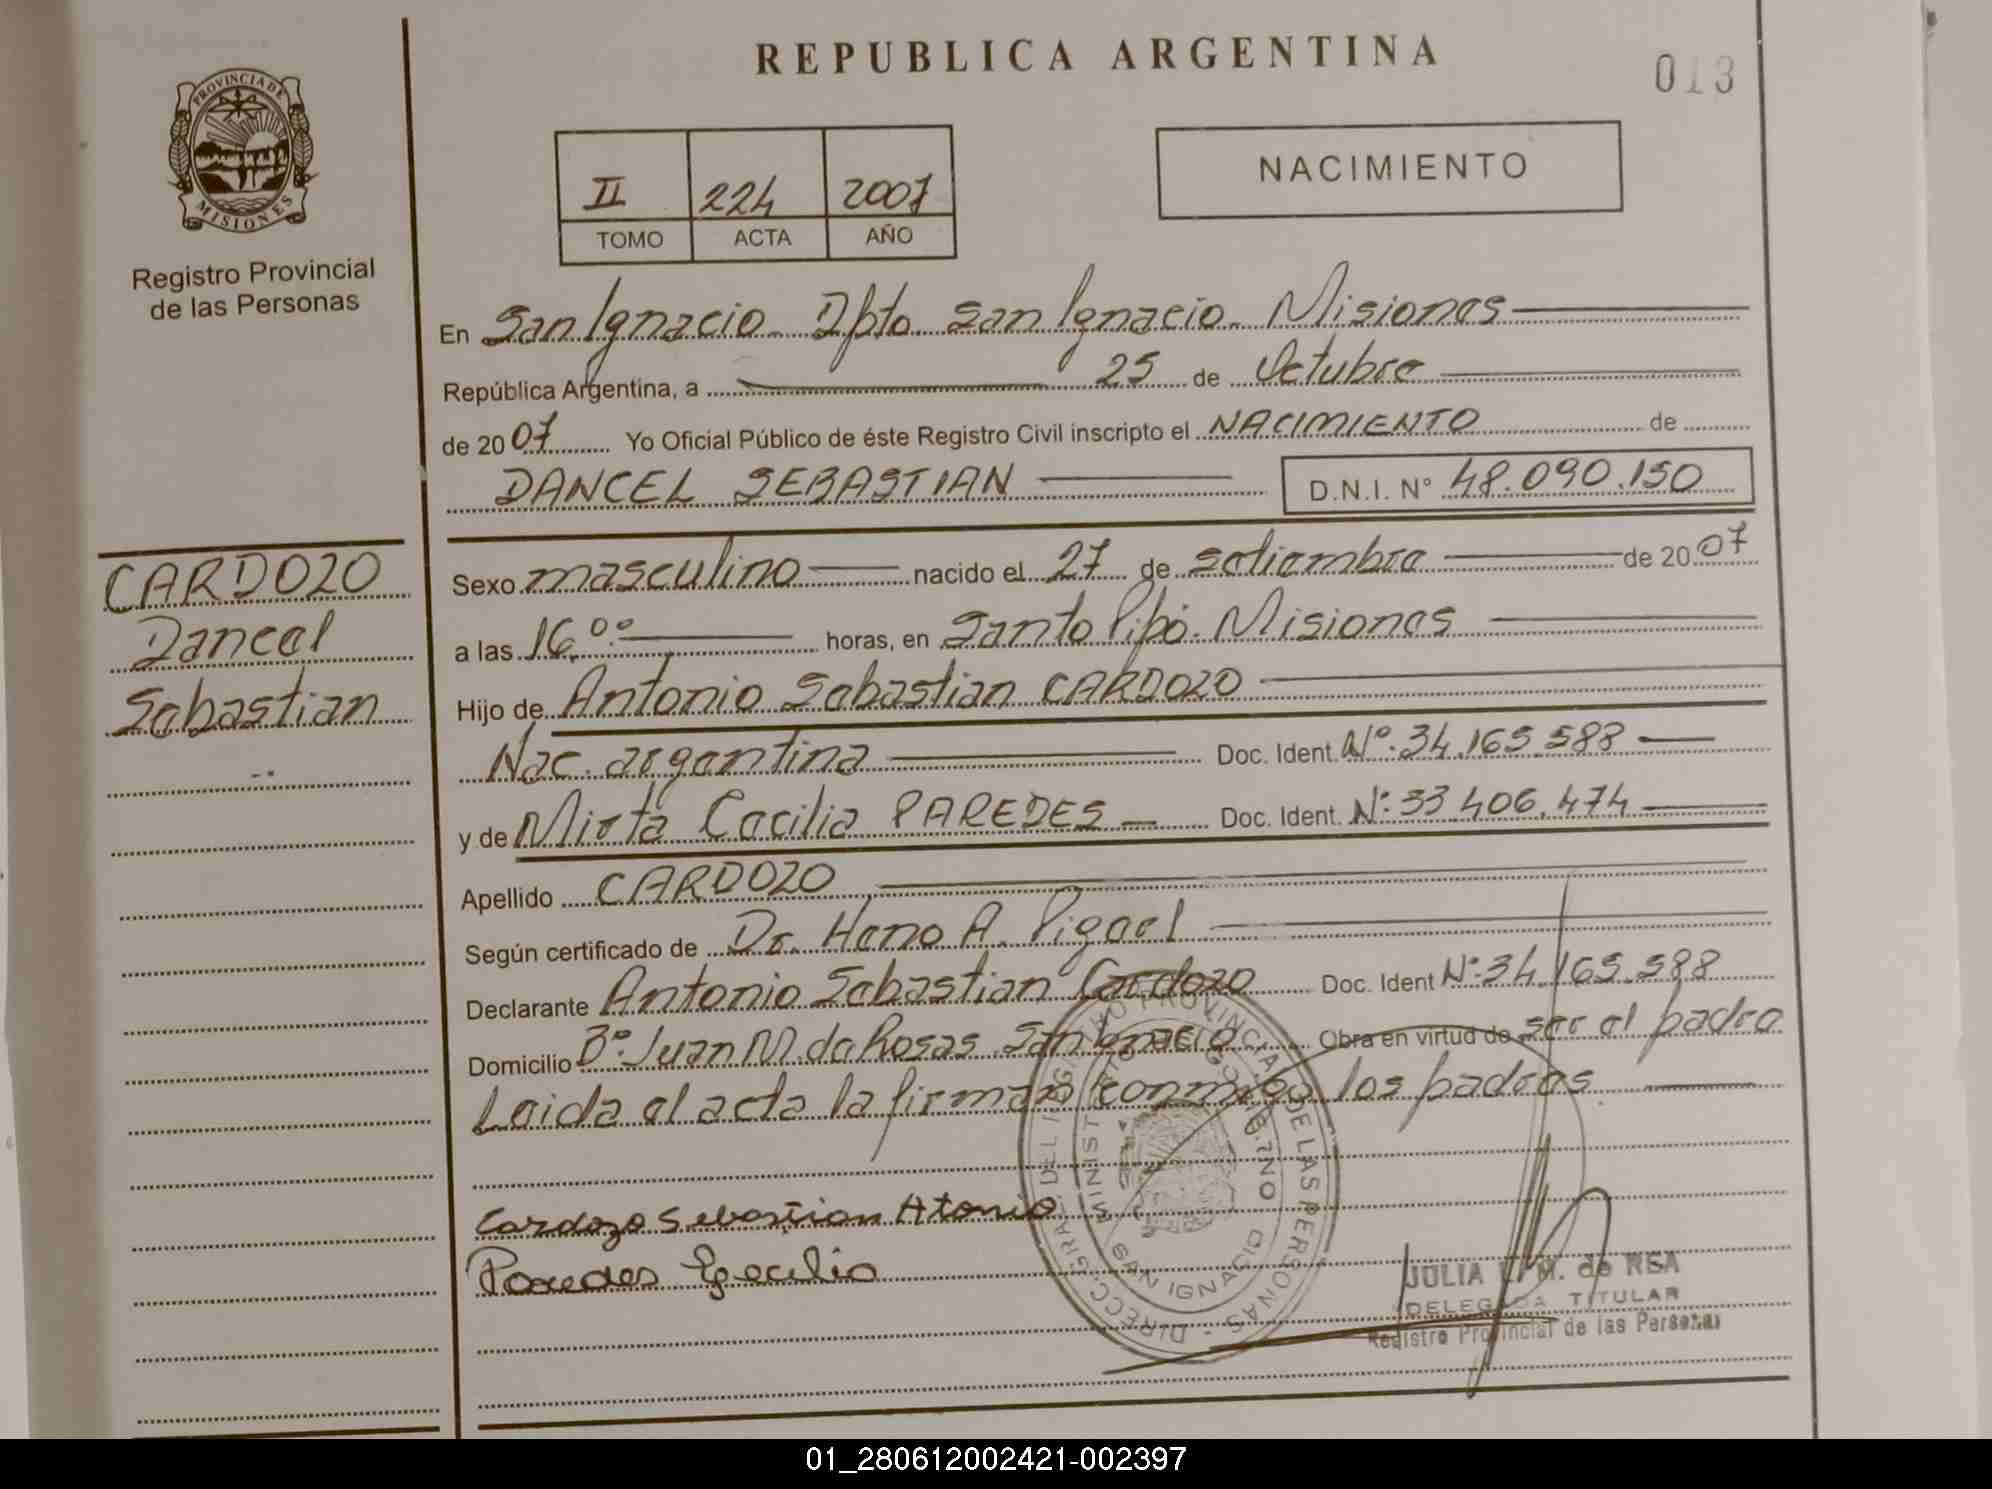 REPUBLICA ARGENTINA
013
PROVINCIA DE
MISIONES
Registro Provincial
de las Personas
II 224 2007
TOMO ACTA AÑO
NACIMIENTO
En San Ignacio Dpto San Ignacio Misiones
República Argentina, a 25 de Octubre
de 2007 Yo Oficial Público de éste Registro Civil inscripto el NACIMIENTO de
DANCEL SEBASTIAN D.N.I. N° 48.090.150
CARDOZO
Dancel
Sebastian
Sexo masculino nacido el 27 de setiembre de 2007
a las 16.00 horas, en Santo Pipó. Misiones
Hijo de Antonio Sebastian CARDOZO
Nac. argentina Doc. Ident. N°. 34.165.588
y de Mirta Cecilia PAREDES Doc. Ident. N°: 33.406.474
Apellido CARDOZO
Según certificado de Dr. A.
Declarante Antonio Sebastian Cardozo Doc. Ident N°: 34.165.588
Domicilio B°. Juan M. de Rosas San Ignacio Obra en virtud de ser el padre
Leida el acta la firman conmigo los padres
Cardozo Sebastian Atonio
Paredes
DIRECC. GRAL. DEL REGISTRO PROVINCIAL DE LAS PERSONAS -
MINISTERIO GOBIERNO
SAN IGNACIO
JULIA M. de REA
DELEGADA TITULAR
Registro Provincial de las Personas
01_280612002421-002397